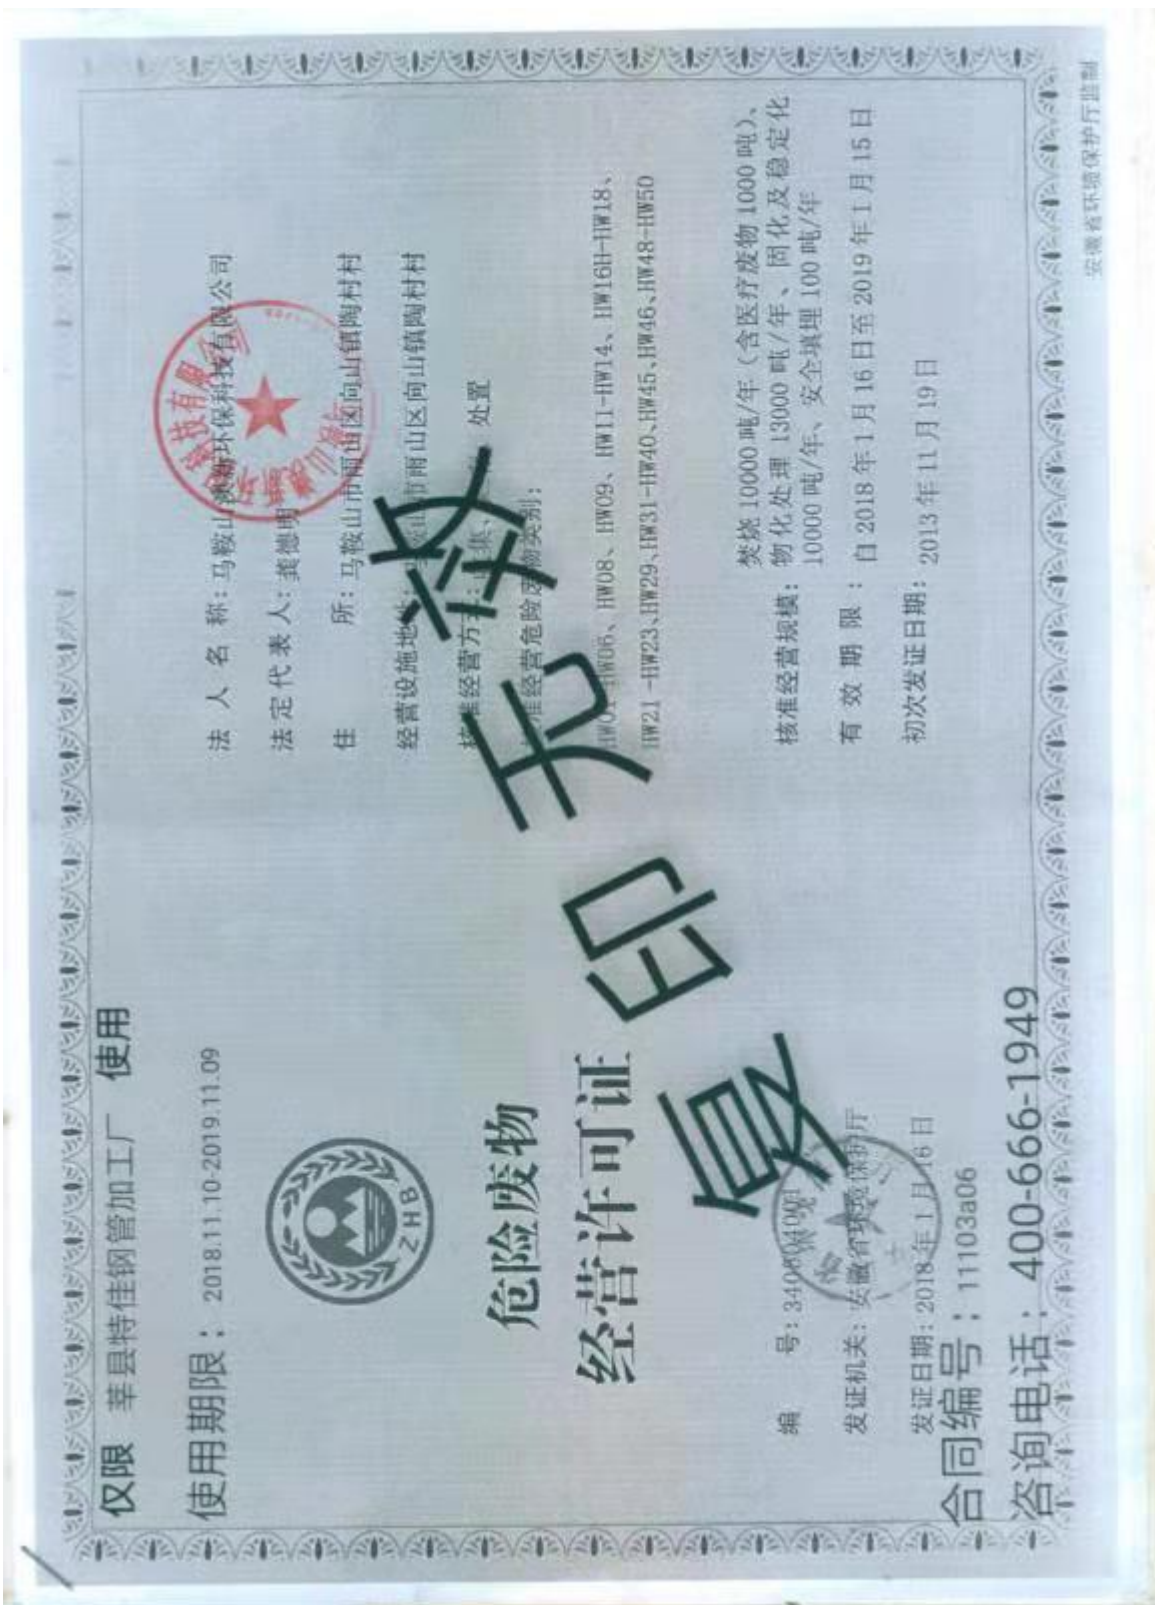 仅限 莘县特佳钢管加工厂 使用
使用期限：2018.11.10-2019.11.09
ZHB
危险废物
经营许可证
编 号：
发证机关：安徽省环境保护厅
发证日期：2018年1月16日
合同编号：11103a06
咨询电话：400-666-1949
法人名称：马鞍山澳新环保科技有限公司
法定代表人：龚德明
住 所：马鞍山市雨山区向山镇陶村村
经营设施地址：马鞍山市雨山区向山镇陶村村
核准经营方式：收集、 处置
核准经营危险废物类别：
HW06、HW08、HW09、HW11-HW14、HW16H-HW18、
HW21-HW23、HW29、HW31-HW40、HW45、HW46、HW48-HW50
核准经营规模：焚烧10000吨/年（含医疗废物1000吨）、
物化处理13000吨/年、固化及稳定化
10000吨/年、安全填埋100吨/年
有效期限：自2018年1月16日至2019年1月15日
初次发证日期：2013年11月19日
安徽省环境保护厅监制
复印无效